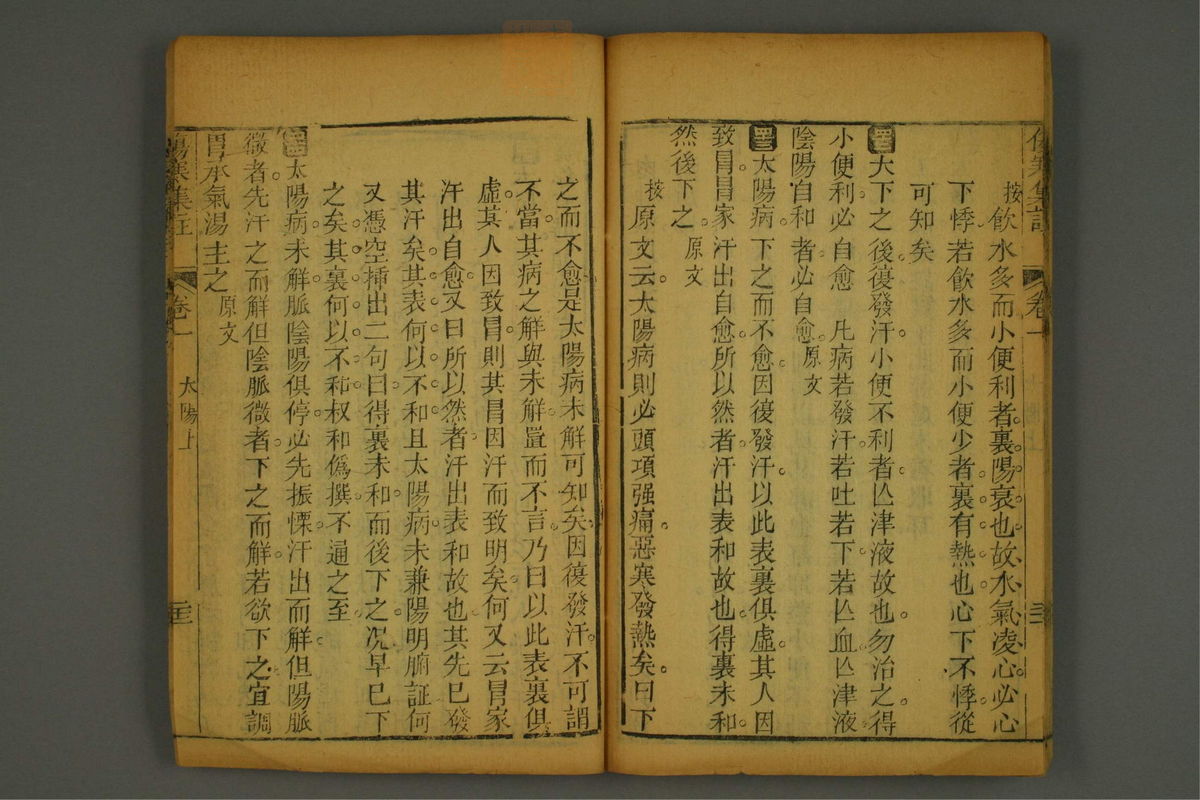 傷寒集註
卷一
按飲水多而小便利者裏陽衰也故水氣凌心必心
下悸若飲水多而小便少者裏有熱也心下不悸從
可知矣
大下之後復發汗小便不利者亾津液故也勿治之得
小便利必自愈 凡病若發汗若吐若下若亾血亾津液
陰陽自和者必自愈原文
太陽病下之而不愈因復發汗以此表裏俱虛其人因
致冒冒家汗出自愈所以然者汗出表和故也得裏未和
然後下之原文
按原文云太陽病則必頭項强痛惡寒發熱矣曰下
之而不愈是太陽病未解可知矣因復發汗不可謂
不當其病之解與未解置而不言乃曰以此表裏俱
虛其人因致冒則其冒因汗而致明矣何又云冒家
汗出自愈又曰所以然者汗出表和故也其先已發
其汗矣其表何以不和且太陽病未兼陽明腑証何
又憑空揷出二句曰得裏未和而後下之况早已下
之矣其裏何以不和叔和僞撰不通之至
太陽病未解脈陰陽俱停必先振慄汗出而解但陽脈
微者先汗之而解但陰脈微者下之而解若欲下之宜調
胃承氣湯主之原文
傷寒集註
卷一
太陽上